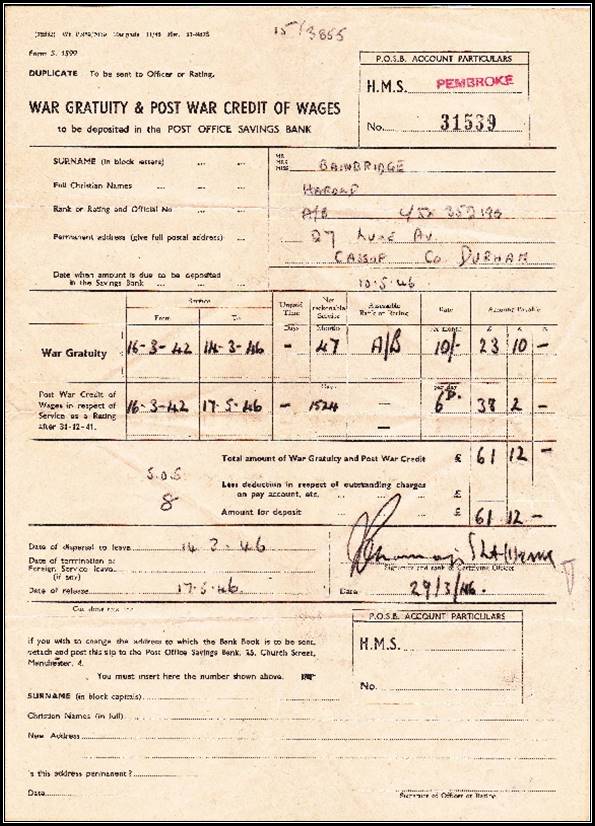 15/3855
Form S. 1899
DUPLICATE To be sent to Officer or Rating.
P.O.S.B. ACCOUNT PARTICULARS
H.M.S. PEMBROKE
No. 31539
WAR GRATUITY & POST WAR CREDIT OF WAGES
to be deposited in the POST OFFICE SAVINGS BANK
SURNAME (in block letters) ... ... BAINBRIDGE
MR. MRS. MISS
Full Christian Names ... ... HAROLD
Rank or Rating and Official No. ... A/B
Permanent address (give full postal address) ... 27 LUKE AV.
CASSOP CO. DURHAM
Date when amount is due to be deposited
in the Savings Bank ... ... 10.5.46
Service Unpaid Time Net reckonable Service Assessable Rank or Rating Rate Amount Payable
From To Days Months per month £
War Gratuity 16-3-42 14-3-46 - 47 A/B 10/- 23 10 -
Days per day
Post War Credit of
Wages in respect of
Service as a Rating
after 31-12-41. 16-3-42 17-5-46 - 1524 — 6D. 38 2 -
Total amount of War Gratuity and Post War Credit £ 61 12 -
S.O.S
8
Less deduction in respect of outstanding charges
on pay account, etc. ... £
Amount for deposit ... £ 61 12 -
Date of dispersal to leave 14 3 46
Date of termination of
Foreign Service leave
(if any)
Signature and rank of Certifying Officer
Date of release 17.5.46.
Date 29/3/46.
P.O.S.B. ACCOUNT PARTICULARS
H.M.S.
No.
If you wish to change the address to which the Bank Book is to be sent,
detach and post this slip to the Post Office Savings Bank, 25, Church Street,
Manchester, 4.
You must insert here the number shown above.
SURNAME (in block capitals)
Christian Names (in full)
New Address
Is this address permanent?
Date
Signature of Officer or Rating.